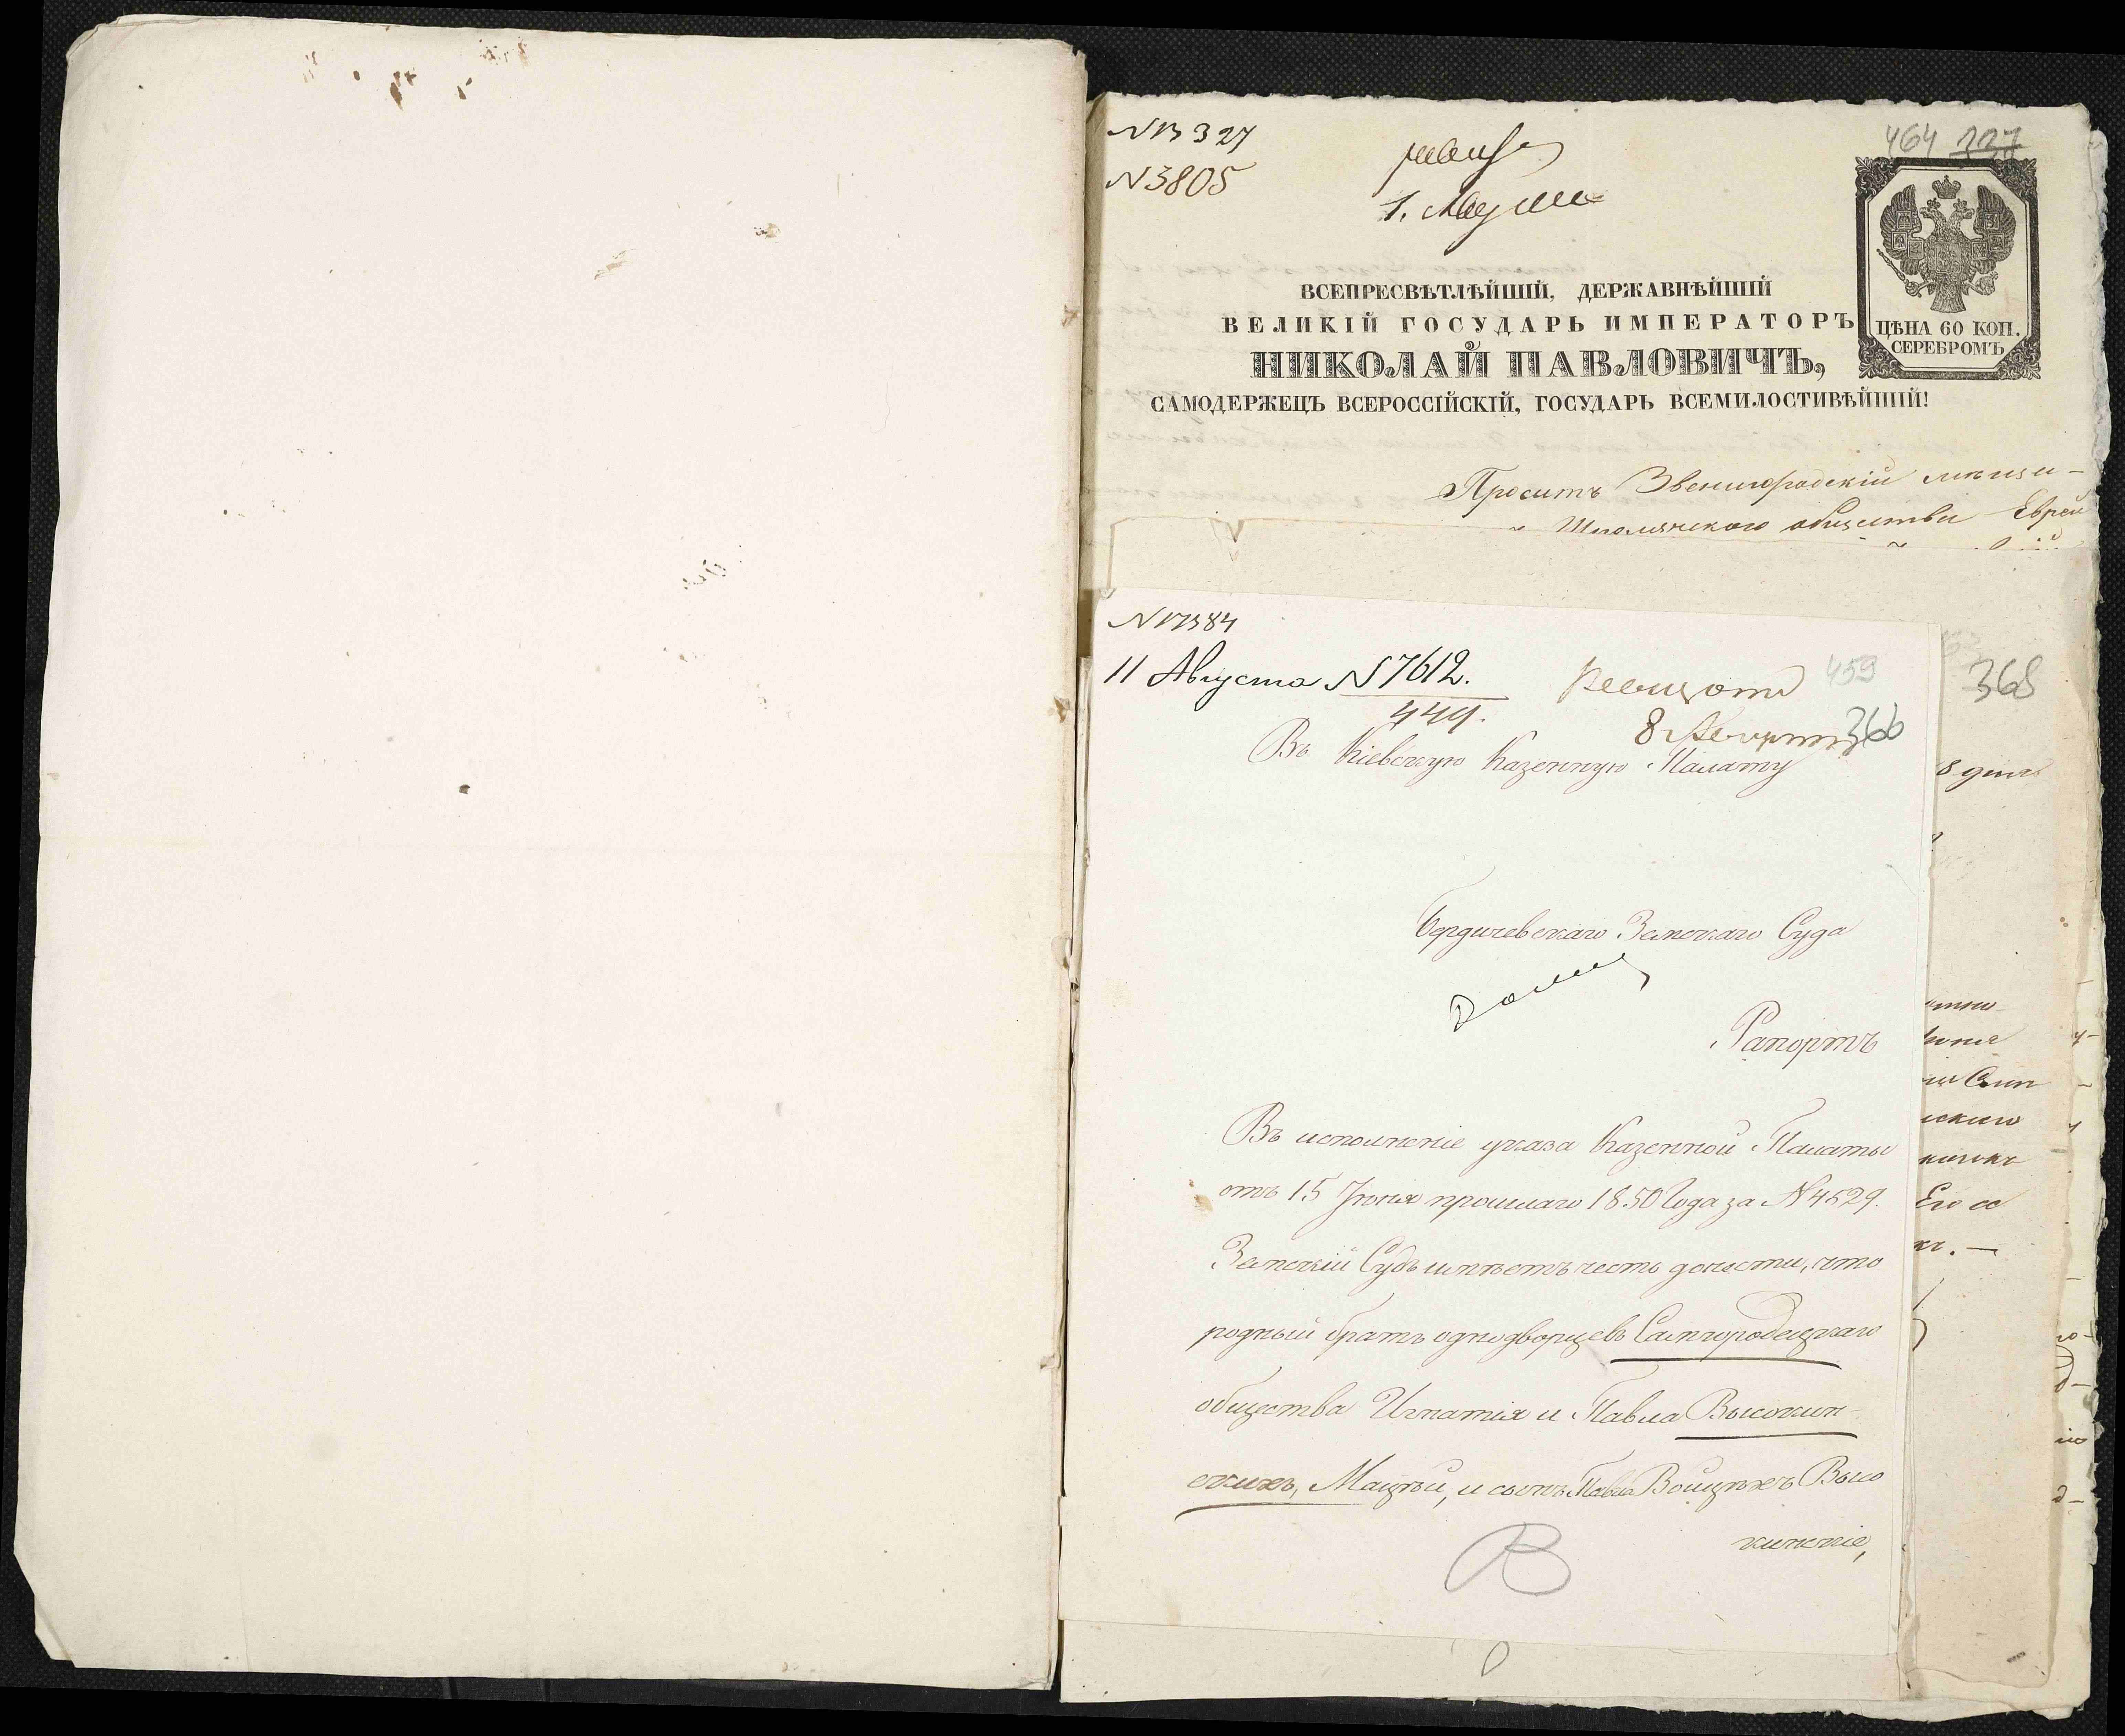 N 13327
N 3805
464 337
ВСЕПРЕСВѢТЛѢЙШІЙ, ДЕРЖАВНѢЙШІЙ
ВЕЛИКІЙ ГОСУДАРЬ ИМПЕРАТОРЪ
НИКОЛАЙ ПАВЛОВИЧЪ,
САМОДЕРЖЕЦЪ ВСЕРОССІЙСКІЙ, ГОСУДАРЬ ВСЕМИЛОСТИВѢЙШІЙ!
ЦѢНА 60 КОП.
СЕРЕБРОМЪ
Проситъ Звенигородскій мѣщи-
Шполянскаго общества Еврей
N 17384
11 Августа N 7612.
444.
459
8 Августа 366
368
Въ Кіевскую Казенную Палату
8 дня
Бердичевскаго Земскаго Суда
Рапортъ
Въ исполненіе указа Казенной Палаты
отъ 15 Іюня прошлаго 1850 Года за N 4629.
Земскій Судъ имѣетъ честь донести, что
родный братъ однодворцевъ Самгородецкаго
общества Игнатія и Павла Высокин-
скихъ, Мацѣй, и сынъ Павла Войцѣхъ Высо
кинскіе,
В